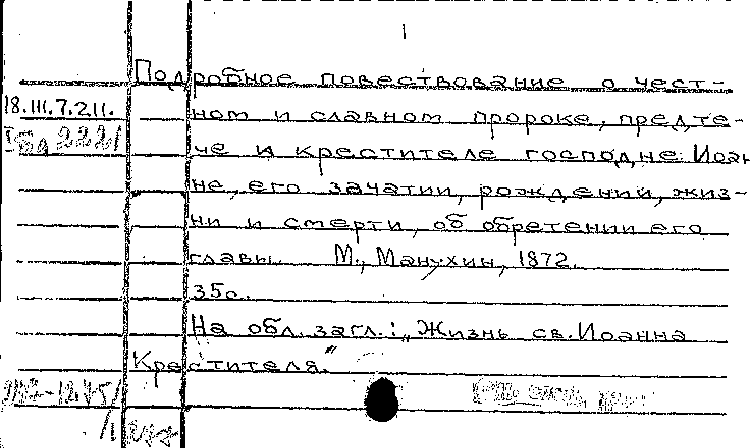 1
Подробное повествование о чест-
18.III.7.211.
ном и славном пророке, предте-
че и крестителе господне Иоан
не, его зачатии, рождении, жиз-
ни и смерти, об обретении его
главы. М., Манухин, 1872.
35с.
На обл. загл.: „Жизнь св. Иоанна
Крестителя."